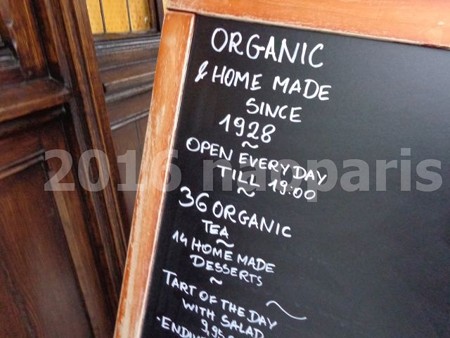 ORGANIC
& HOME MADE
SINCE
1928
~
OPEN EVERY DAY
TILL 19:00
~
36 ORGANIC
TEA
~
14 HOME MADE
DESSERTS
~
TART OF THE DAY
WITH SALAD
2016 nanparis